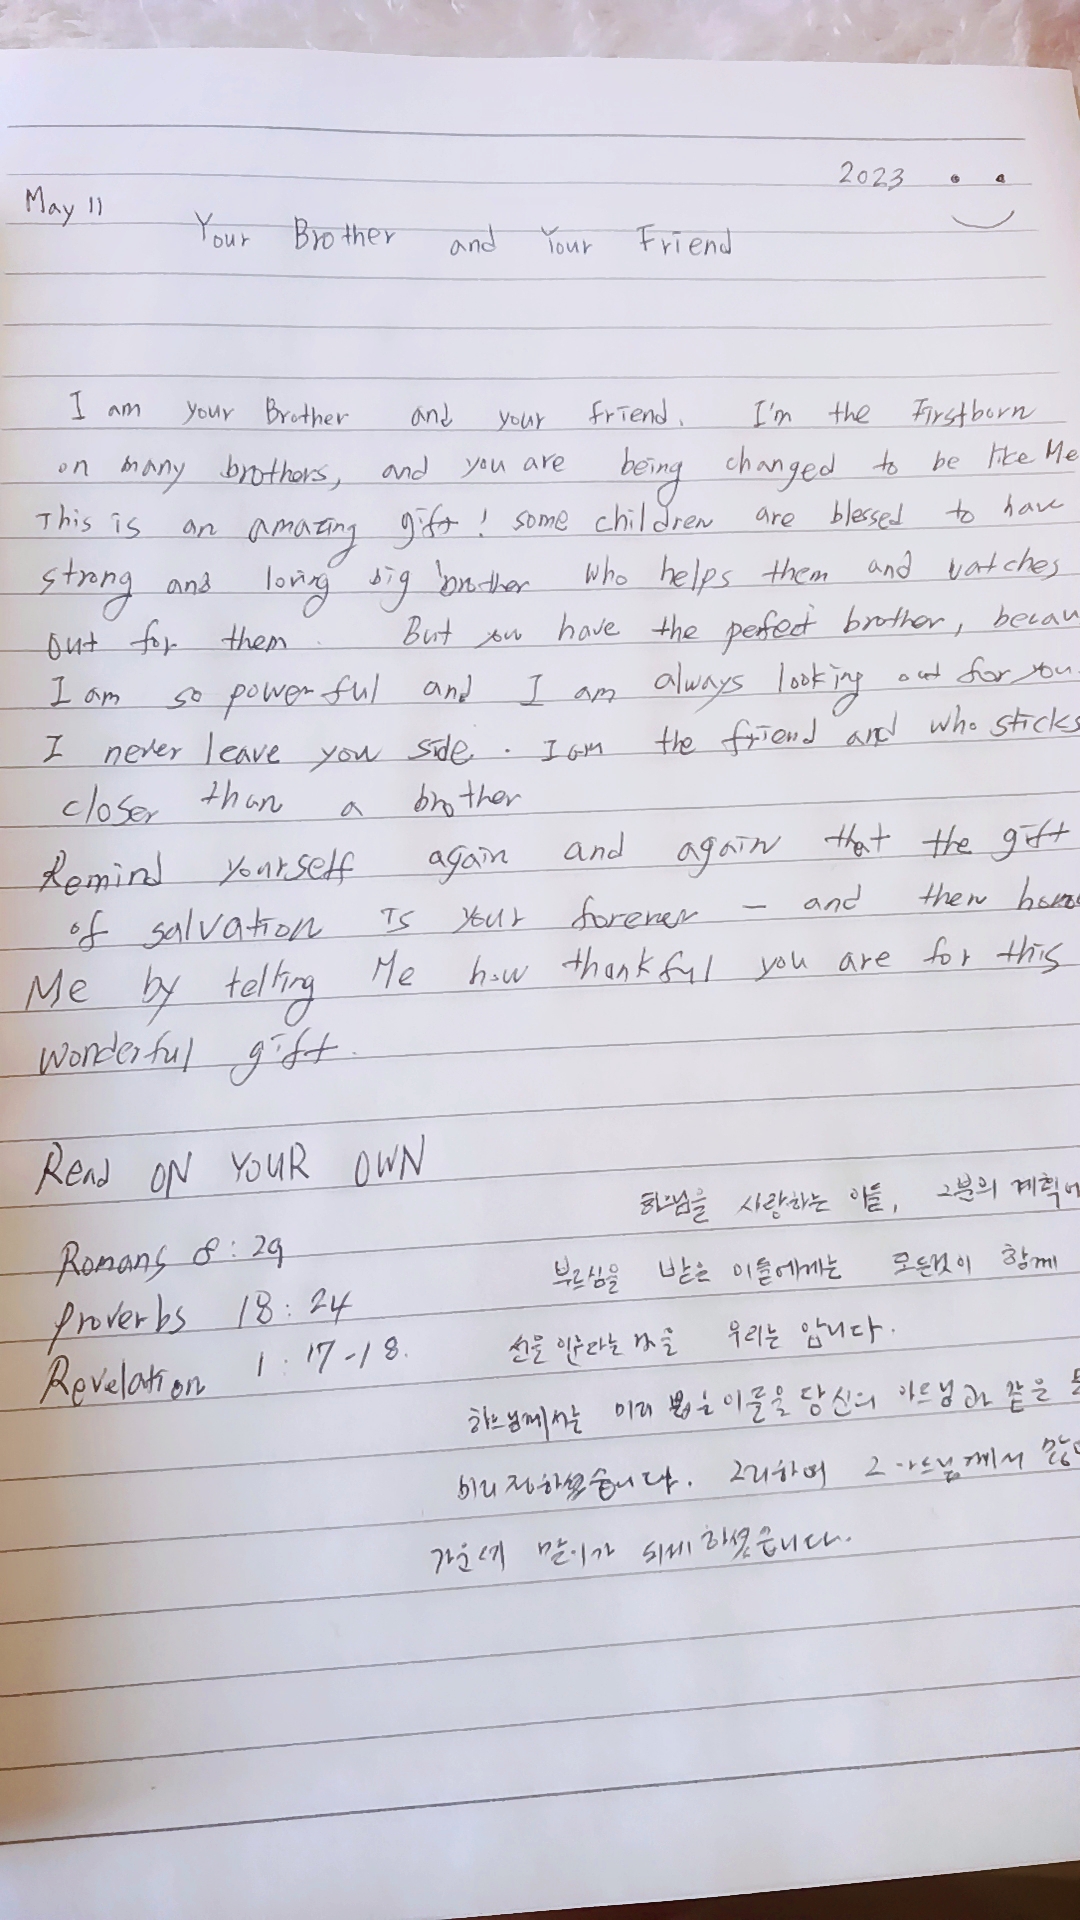 2023
May 11
Your Brother and Your Friend
I am your Brother and your friend. I'm the Firstborn
on many brothers, and you are being changed to be like Me
This is an amazing gift! some children are blessed to have
strong and loving big brother who helps them and watches
out for them. But you have the perfect brother, becau
I am so powerful and I am always looking out for you.
I never leave you side. I am the friend and who sticks
closer than a brother
Remind yourself again and again that the gift
of salvation is your forever – and then
Me by telling Me how thankful you are for this
wonderful gift.
Read ON YOUR OWN
Romans 8:29
Proverbs 18:24
Revelation 1:17-18.
하느님을 사랑하는 이들, 그분의 계획에
부르심을 받은 이들에게는 모든것이 함께
선을 이룬다는 것을 우리는 압니다.
하느님께서는 미리 뽑은 이들을 당신의 아드님과 같은
미리 정하셨습니다. 그리하여 그 아드님께서
가운데 맏이가 되게 하셨습니다.